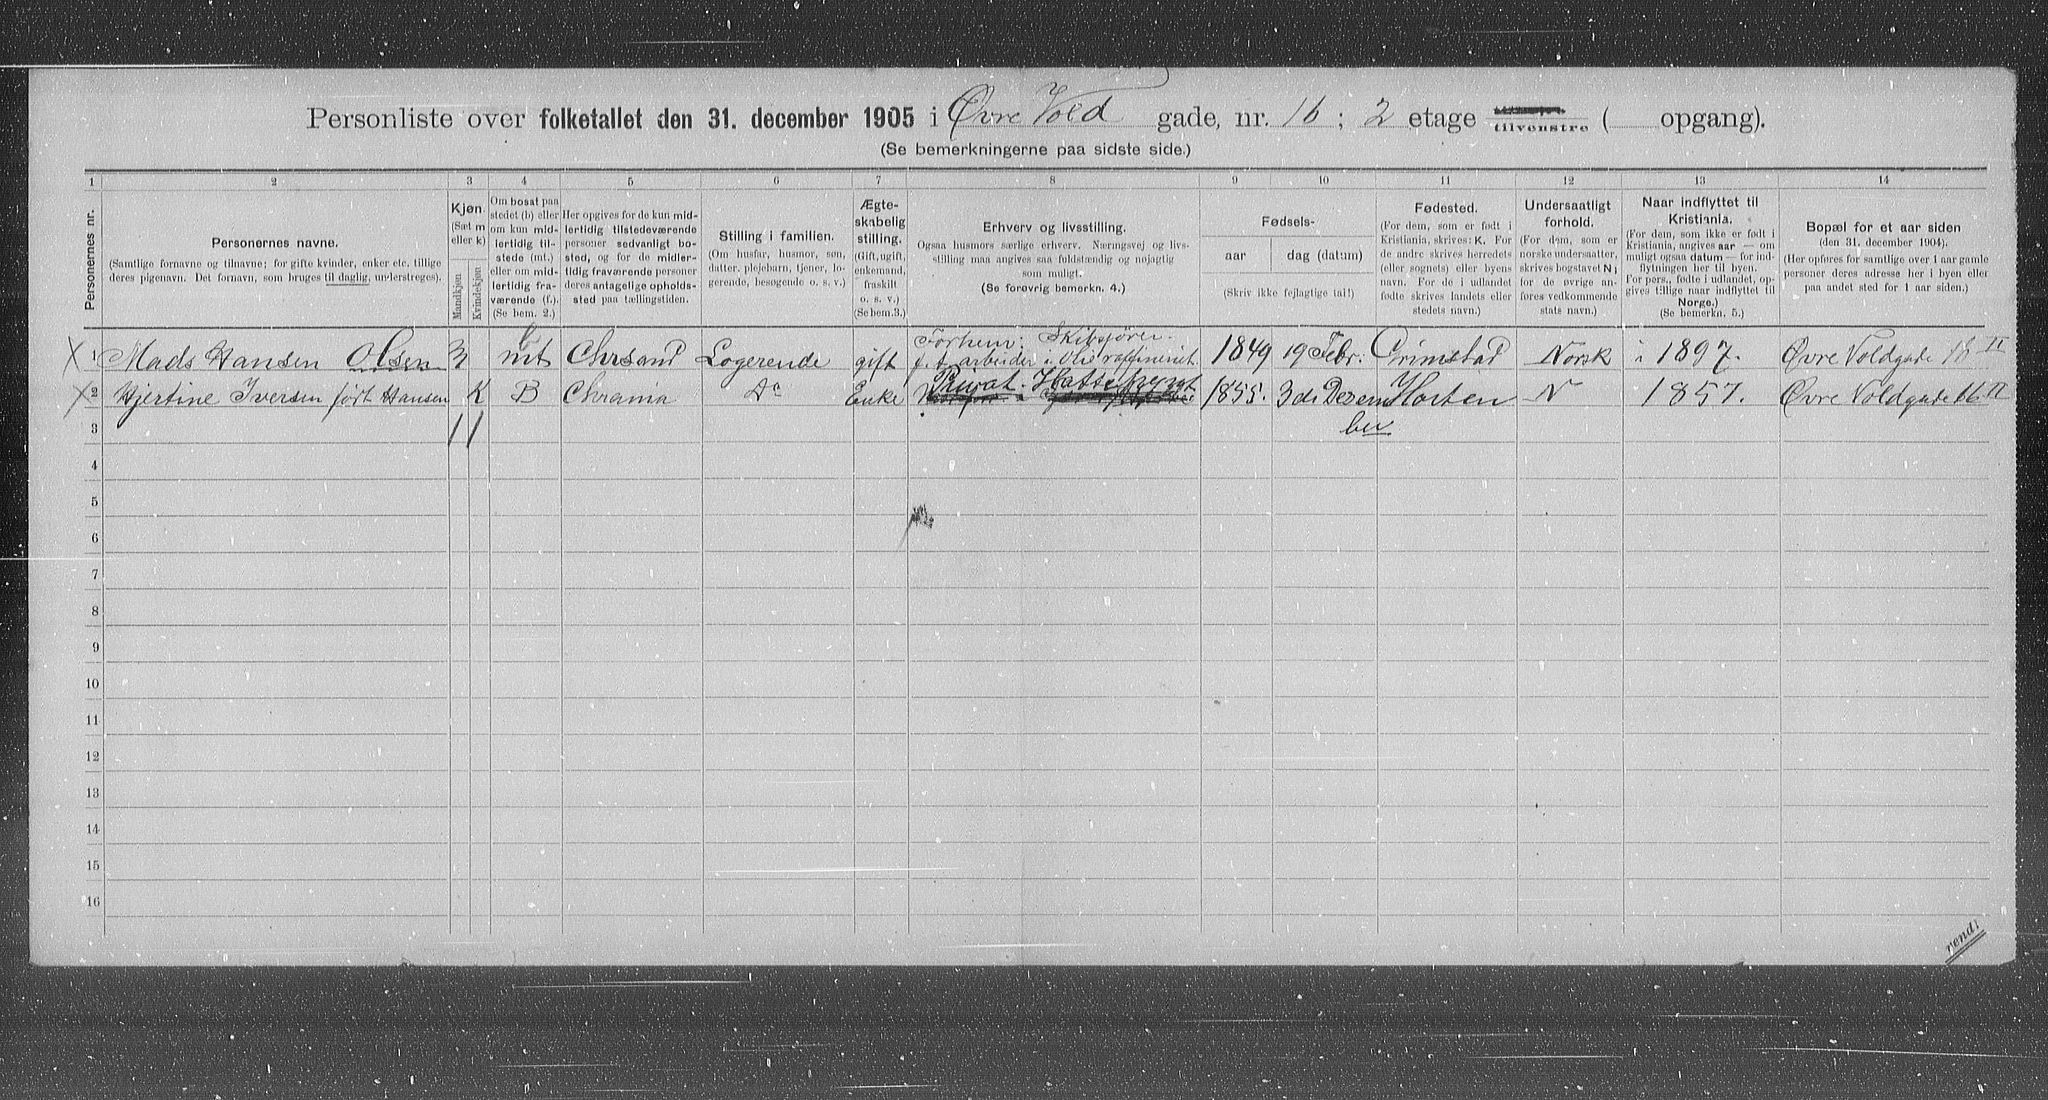 Personliste over folketallet den 31. december 1905 i Øvre Vold gade, nr. 16; 2 etage tilvenstre ( opgang).
(Se bemerkningerne paa sidste side.)
1 2 3 4 5 6 7 8 9 10 11 12 13 14
Personernes nr.
Personernes navne.
(Samtlige fornavne og tilnavne; for gifte kvinder, enker etc. tillige
deres pigenavn. Det fornavn, som bruges til daglig, understreges).
Kjøn.
(Sæt m
eller k)
Mandkjøn
Kvindekjøn
Om bosat paa
stedet (b) eller
om kun mid-
lertidig til-
stede (mt.)
eller om mid-
lertidig fra-
værende (f.).
(Se bem. 2.)
Her opgives for de kun mid-
lertidig tilstedeværende
personer sedvanligt bo-
sted, og for de midler-
tidig fraværende personer
deres antagelige opholds-
sted paa tællingstiden.
Stilling i familien.
(Om husfar, husmor, søn,
datter, plejebarn, tjener, lo-
gerende, besøgende o. s. v.)
Ægte-
skabelig
stilling.
(Gift, ugift,
enkemand,
fraskilt
o. s. v.)
(Se bem.3.)
Erhverv og livsstilling.
Ogsaa husmors særlige erhverv. Næringsvej og livs-
stilling maa angives saa fuldstændig og nøjagtig
som muligt.
(Se forøvrig bemerkn. 4.)
Fødsels-
aar
dag (datum)
(Skriv ikke fejlagtige tal!)
Fødested.
(For dem, som er født i
Kristiania, skrives: K. For
de andre skrives herredets
(eller sognets) eller byens
navn. For de i udlandet
fødte skrives landets eller
stedets navn.)
Undersaatligt
forhold.
(For dem, som er
norske undersaatter,
skrives bogstavet N;
for de øvrige an-
føres vedkommende
stats navn.)
Naar indflyttet til
Kristiania.
(For dem, som ikke er født i
Kristiania, angives aar — om
muligt ogsaa datum — for ind-
flytningen her til byen.
For pers., fødte i udlandet, op-
gives tillige naar indflyttet til
Norge.)
(Se bemerkn. 5.)
Bopæl for et aar siden
(den 31. december 1904).
(Her opføres for samtlige over 1 aar gamle
personer deres adresse her i byen eller
paa andet sted for 1 aar siden.)
Forhen: Skibsfører
1 Mads Hansen Olsen mt Chrsand Logerende gift f. t. arbeider i Olieraffineriet 1849 19 Febr. Grimstad Norsk i 1897. Øvre Voldgade 18 II
Privat.
2 Hjertine Iversen født Hansen K B Chrania Do Enke 1855. 3di Decem Horten N 1857. Øvre Voldgade 16 II
ber
3 1 1
4
5
6
7
8
9
10
11
12
13
14
15
16
vend!